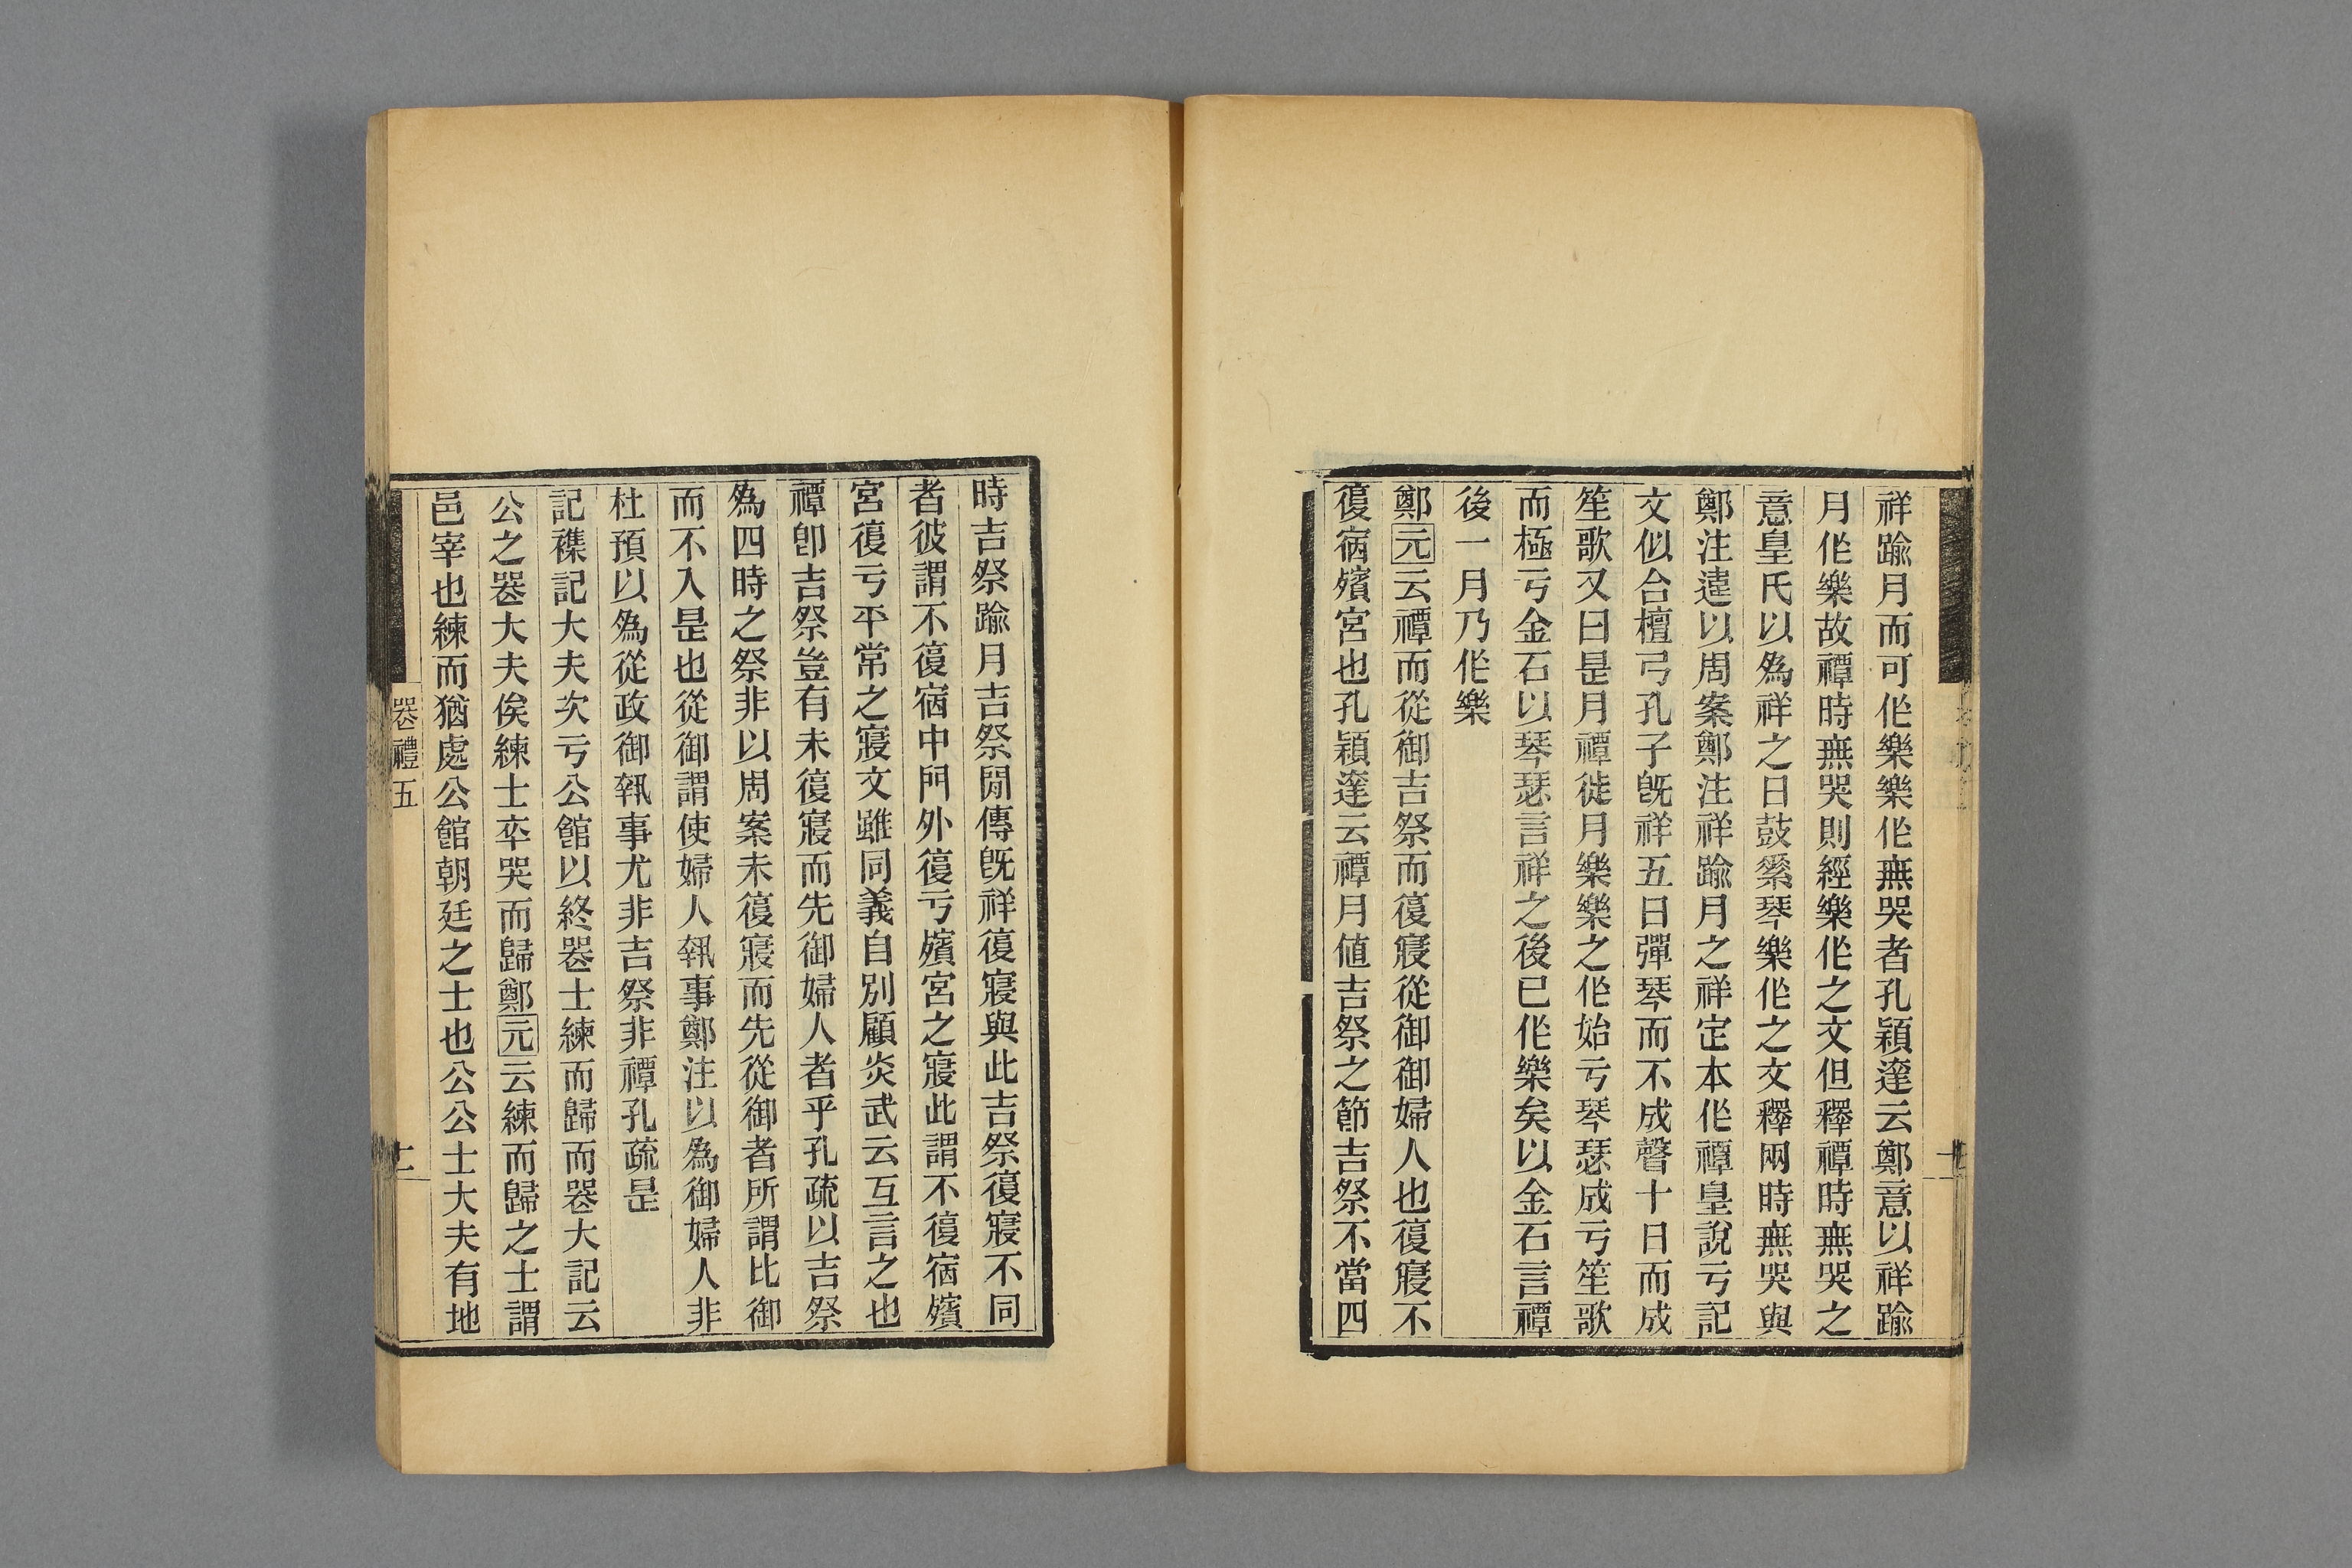 祥踰月而可作樂樂作無哭者孔穎達云鄭意以祥踰
月作樂故禫時無哭則經樂作之文但釋禫時無哭之
意皇氏以爲祥之日鼓素琴樂作之文釋兩時無哭與
鄭注違以周案鄭注祥踰月之祥定本作禫皇說亏記
文似合檀弓孔子旣祥五日彈琴而不成聲十日而成
笙歌又曰是月禫徙月樂樂之作始亏琴瑟成亏笙歌
而極亏金石以琴瑟言祥之後已作樂矣以金石言禫
後一月乃作樂
鄭元云禫而從御吉祭而復寢從御御婦人也復寢不
復宿殯宮也孔穎達云禫月値吉祭之節吉祭不當四
時吉祭踰月吉祭閒傳旣祥復寢與此吉祭復寢不同
者彼謂不復宿中門外復亏殯宮之寢此謂不復宿殯
宮復亏平常之寢文雖同義自別顧炎武云互言之也
禫卽吉祭豈有未復寢而先御婦人者乎孔疏以吉祭
爲四時之祭非以周案未復寢而先從御者所謂比御
而不入是也從御謂使婦人執事鄭注以爲御婦人非
杜預以爲從政御執事尤非吉祭非禫孔疏是
記襍記大夫次亏公館以終喪士練而歸而喪大記云
公之喪大夫俟練士卒哭而歸鄭元云練而歸之士謂
邑宰也練而猶處公館朝廷之士也公公士大夫有地
喪禮五
十二